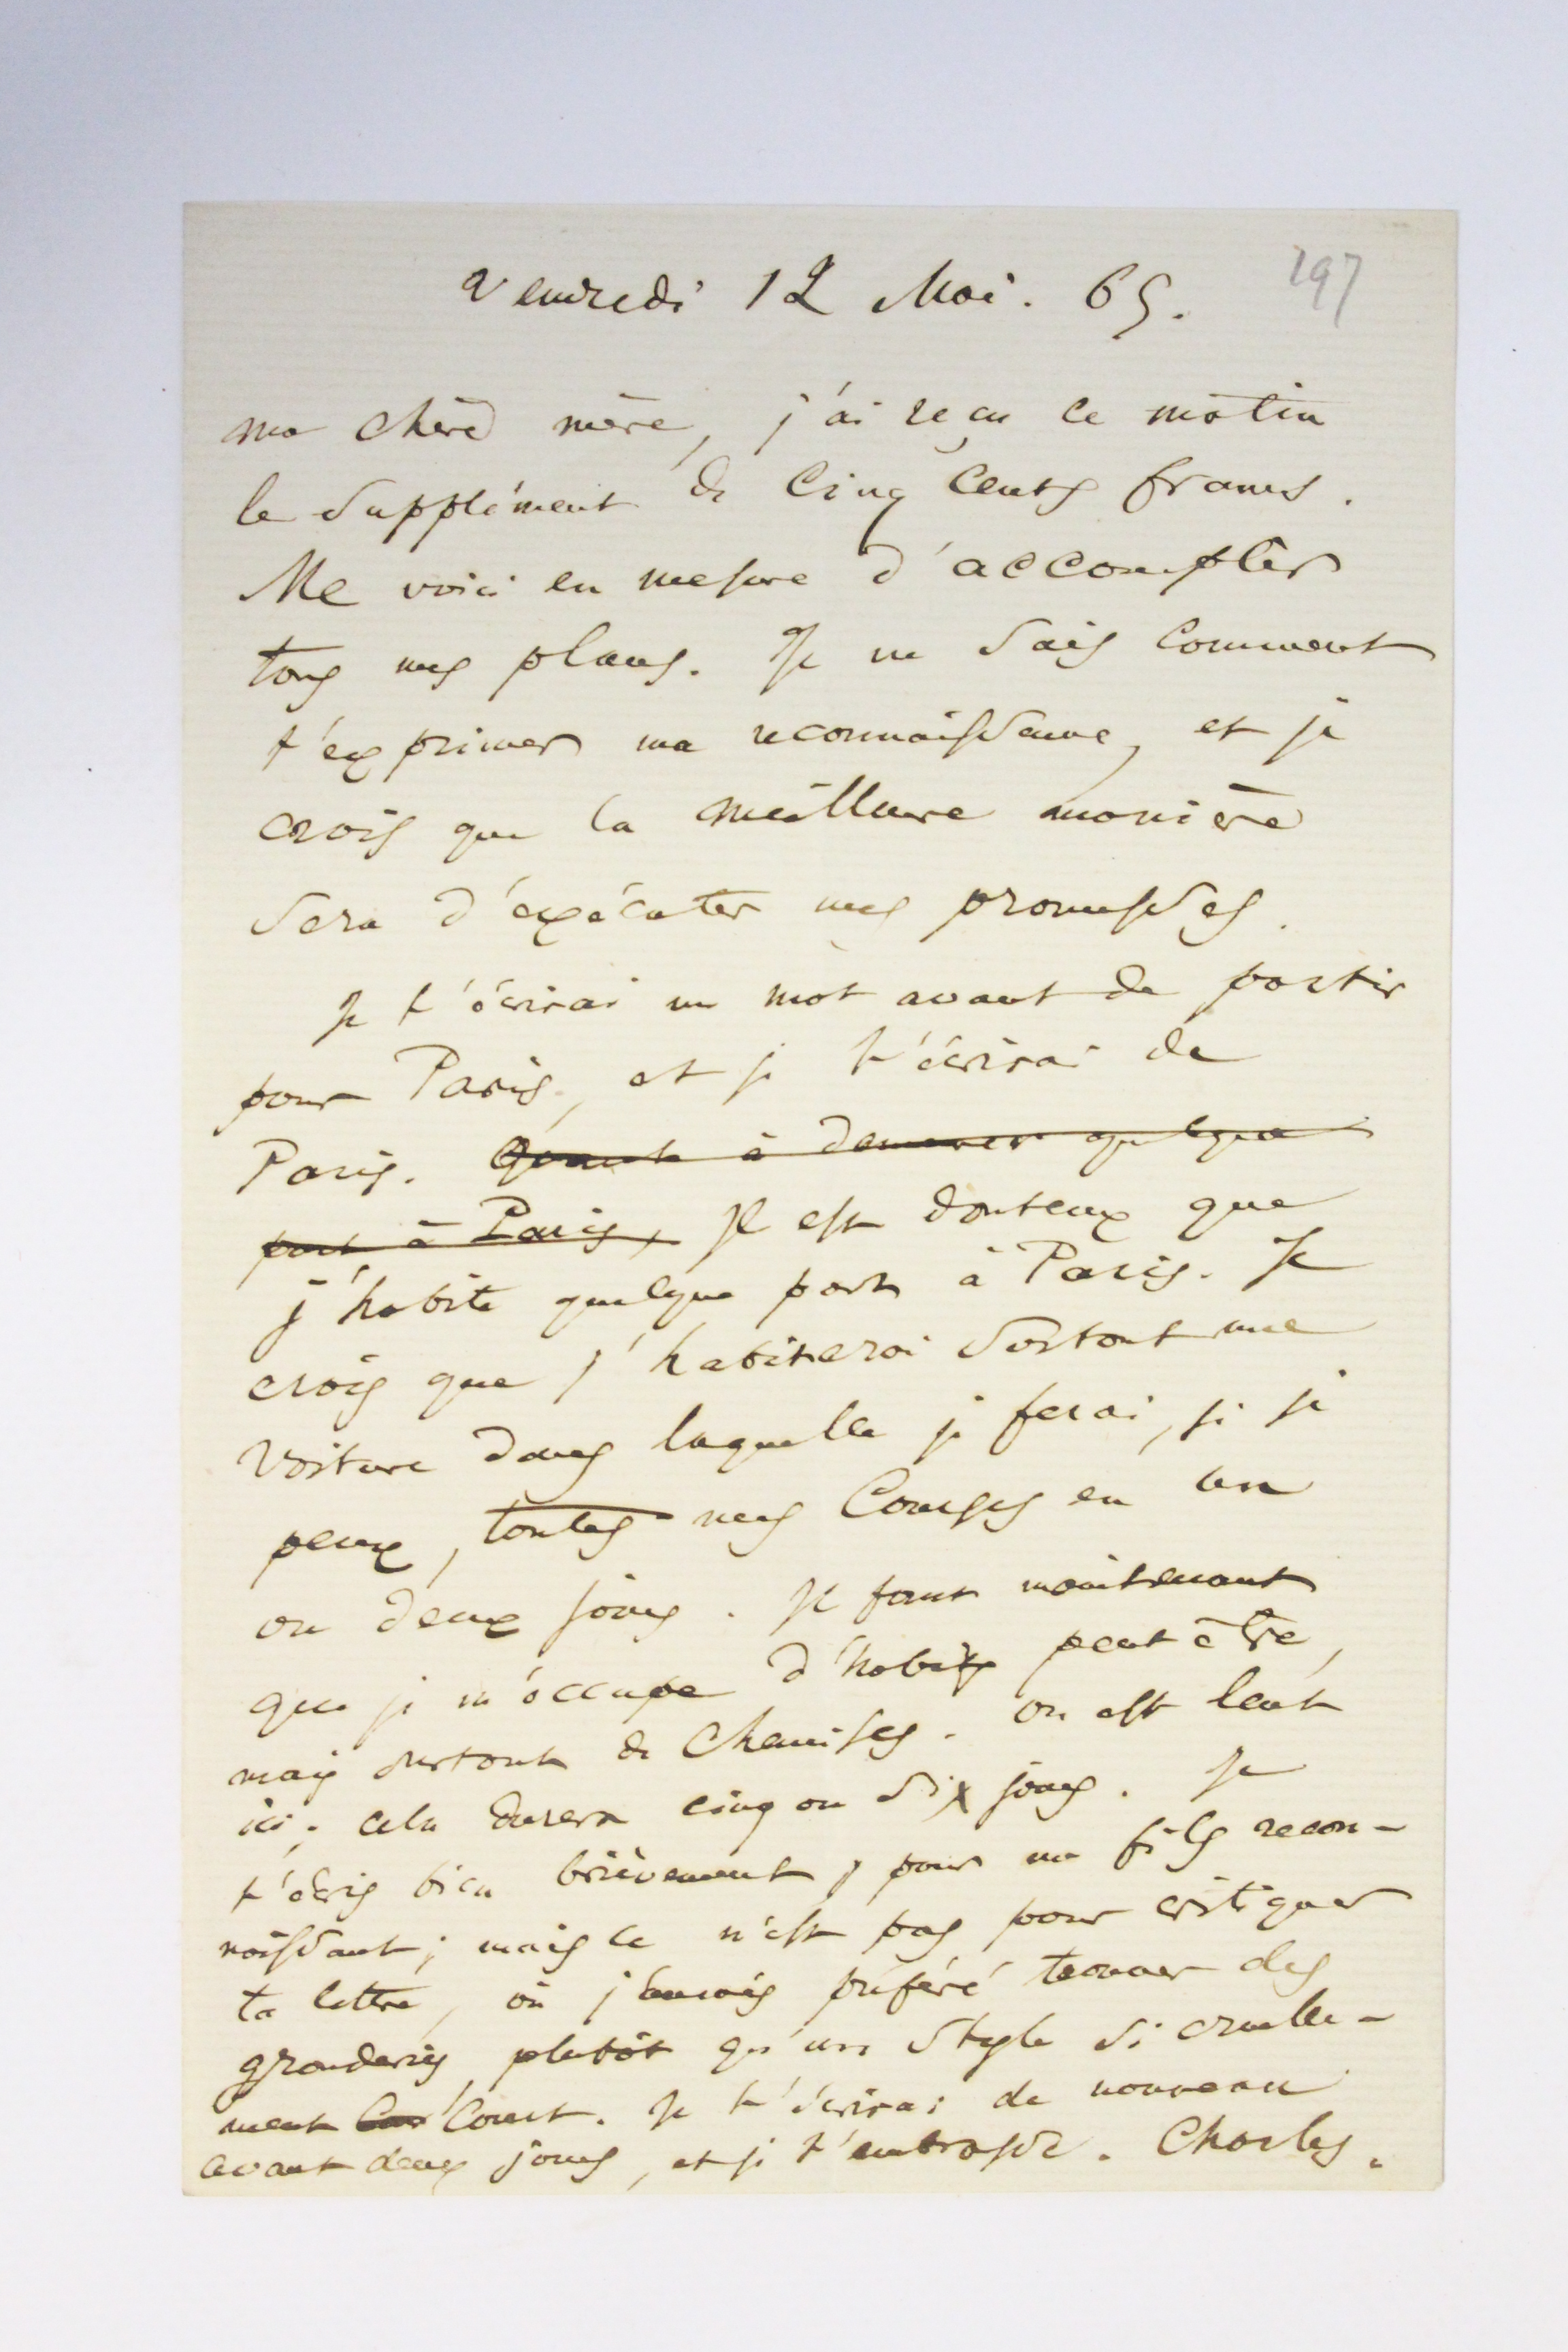 Vendredi 12 Mai. 65.
197
ma chère mère, j'ai reçu ce matin
le supplément de cinq cents francs.
Me voici en mesure d'accomplir
tous mes plans. Je ne sais comment
t'exprimer ma reconnaissance, et je
crois que la meilleure manière
sera d'exécuter mes promesses.
Je t'écrirai un mot avant de partir
pour Paris, et je t'écrirai de
Paris. Quant à demeurer quelque
part à Paris, Il est douteux que
j'habite quelque part à Paris. Je
crois que j'habiterai surtout une
voiture dans laquelle je ferai, si je
peux, toutes mes courses en un
ou deux jours. Il faut maintenant
que je m'occupe d'habits peut être,
mais surtout de chemises. On est lent
ici; cela durera cinq ou six jours. Je
t'écris bien brièvement, pour un fils recon-
naissant; mais ce n'est pas pour critiquer
ta lettre, où j'aurais préféré trouver des
gronderies plutôt qu'un style si cruelle-
ment court. Je t'écrirai de nouveau
avant deux jours, et je t'embrasse. Charles.